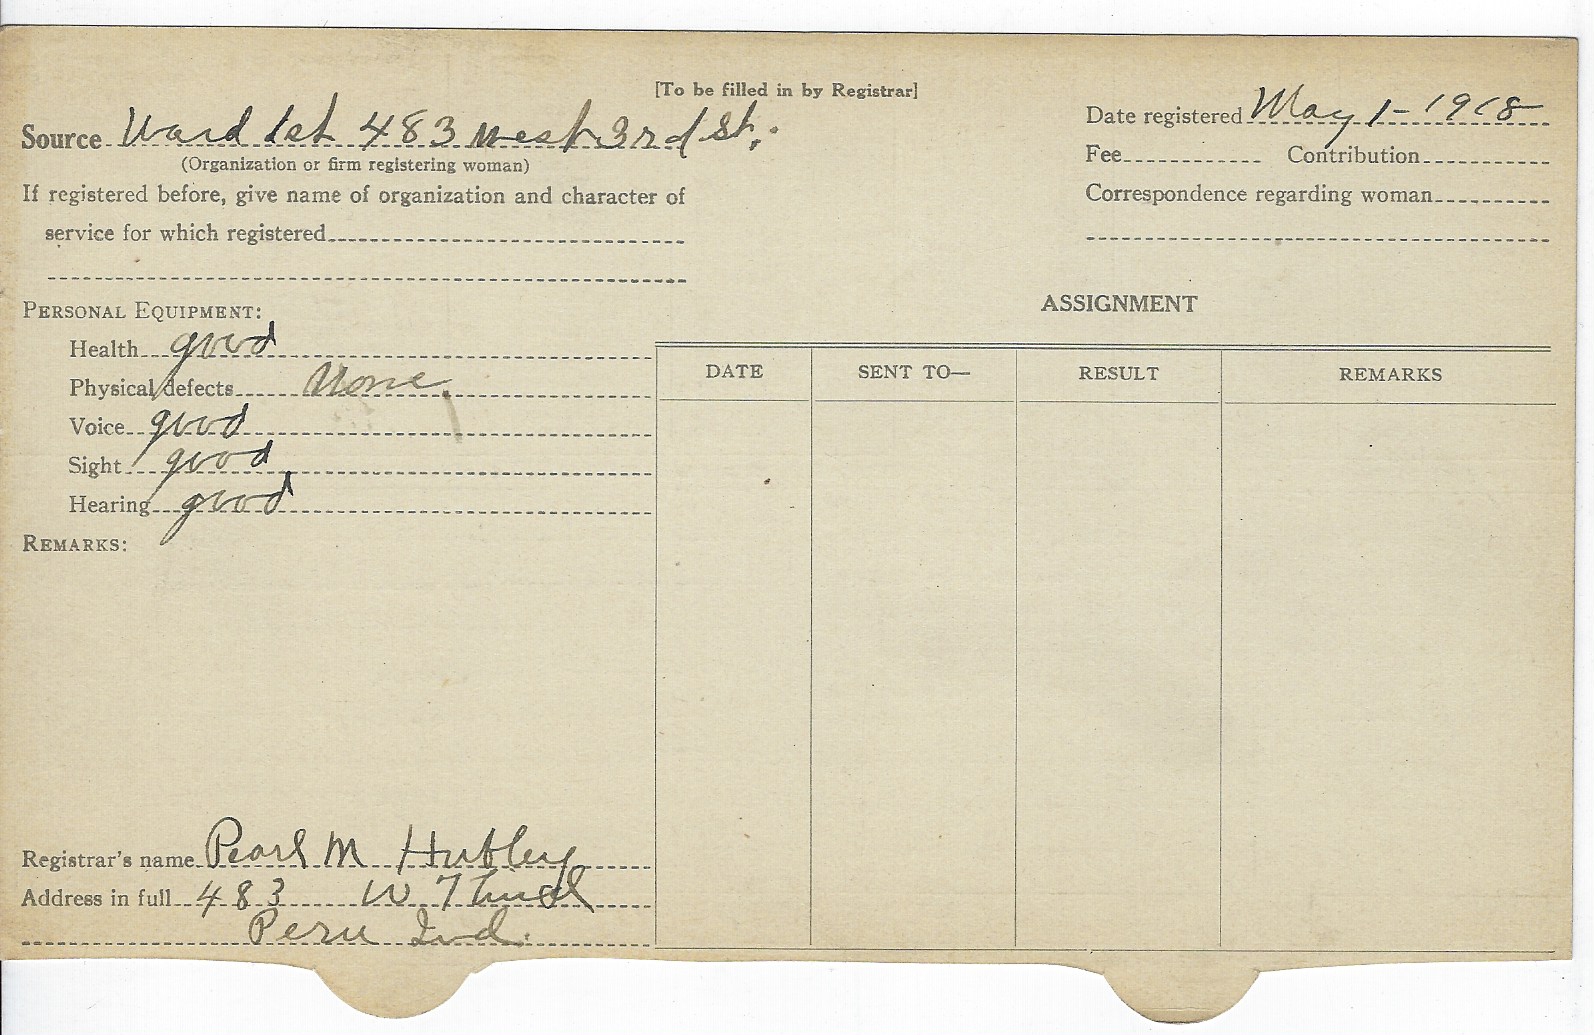 [To be filled in by Registrar]
Source Ward 1st 483 West 3rd St.
(Organization or firm registering woman)
If registered before, give name of organization and character of
service for which registered
Date registered May 1 - 1918
Fee Contribution
Correspondence regarding woman
PERSONAL EQUIPMENT:
Health good
Physical defects None
Voice good
Sight good
Hearing good
REMARKS:
ASSIGNMENT
DATE SENT TO— RESULT REMARKS
Registrar's name Pearl M Hubley
Address in full 483 W Third
Peru Ind.